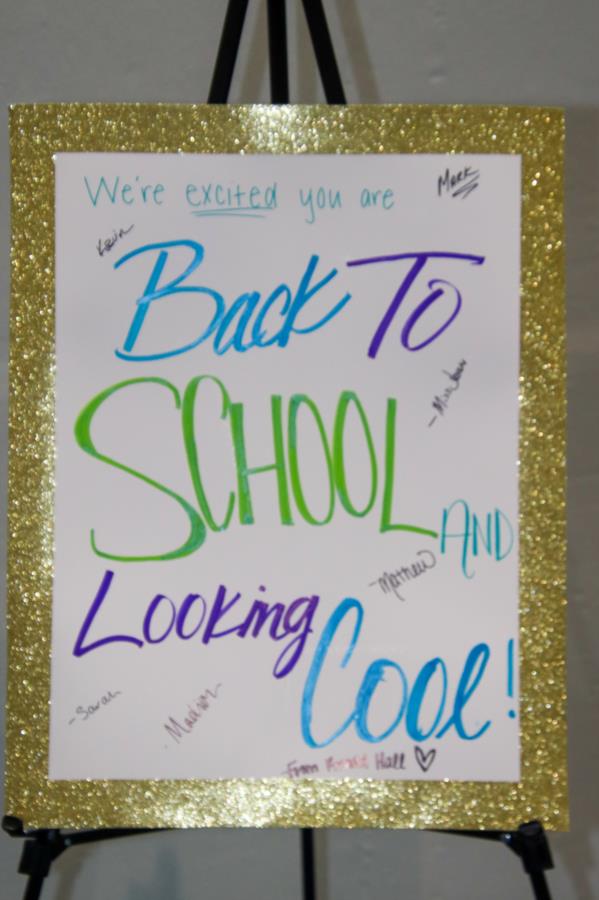 We're excited you are
Mark
Kevin
Back To
SCHOOL
AND
Matthew
Looking
Cool!
-Sarah
Madison
From Hall ♡